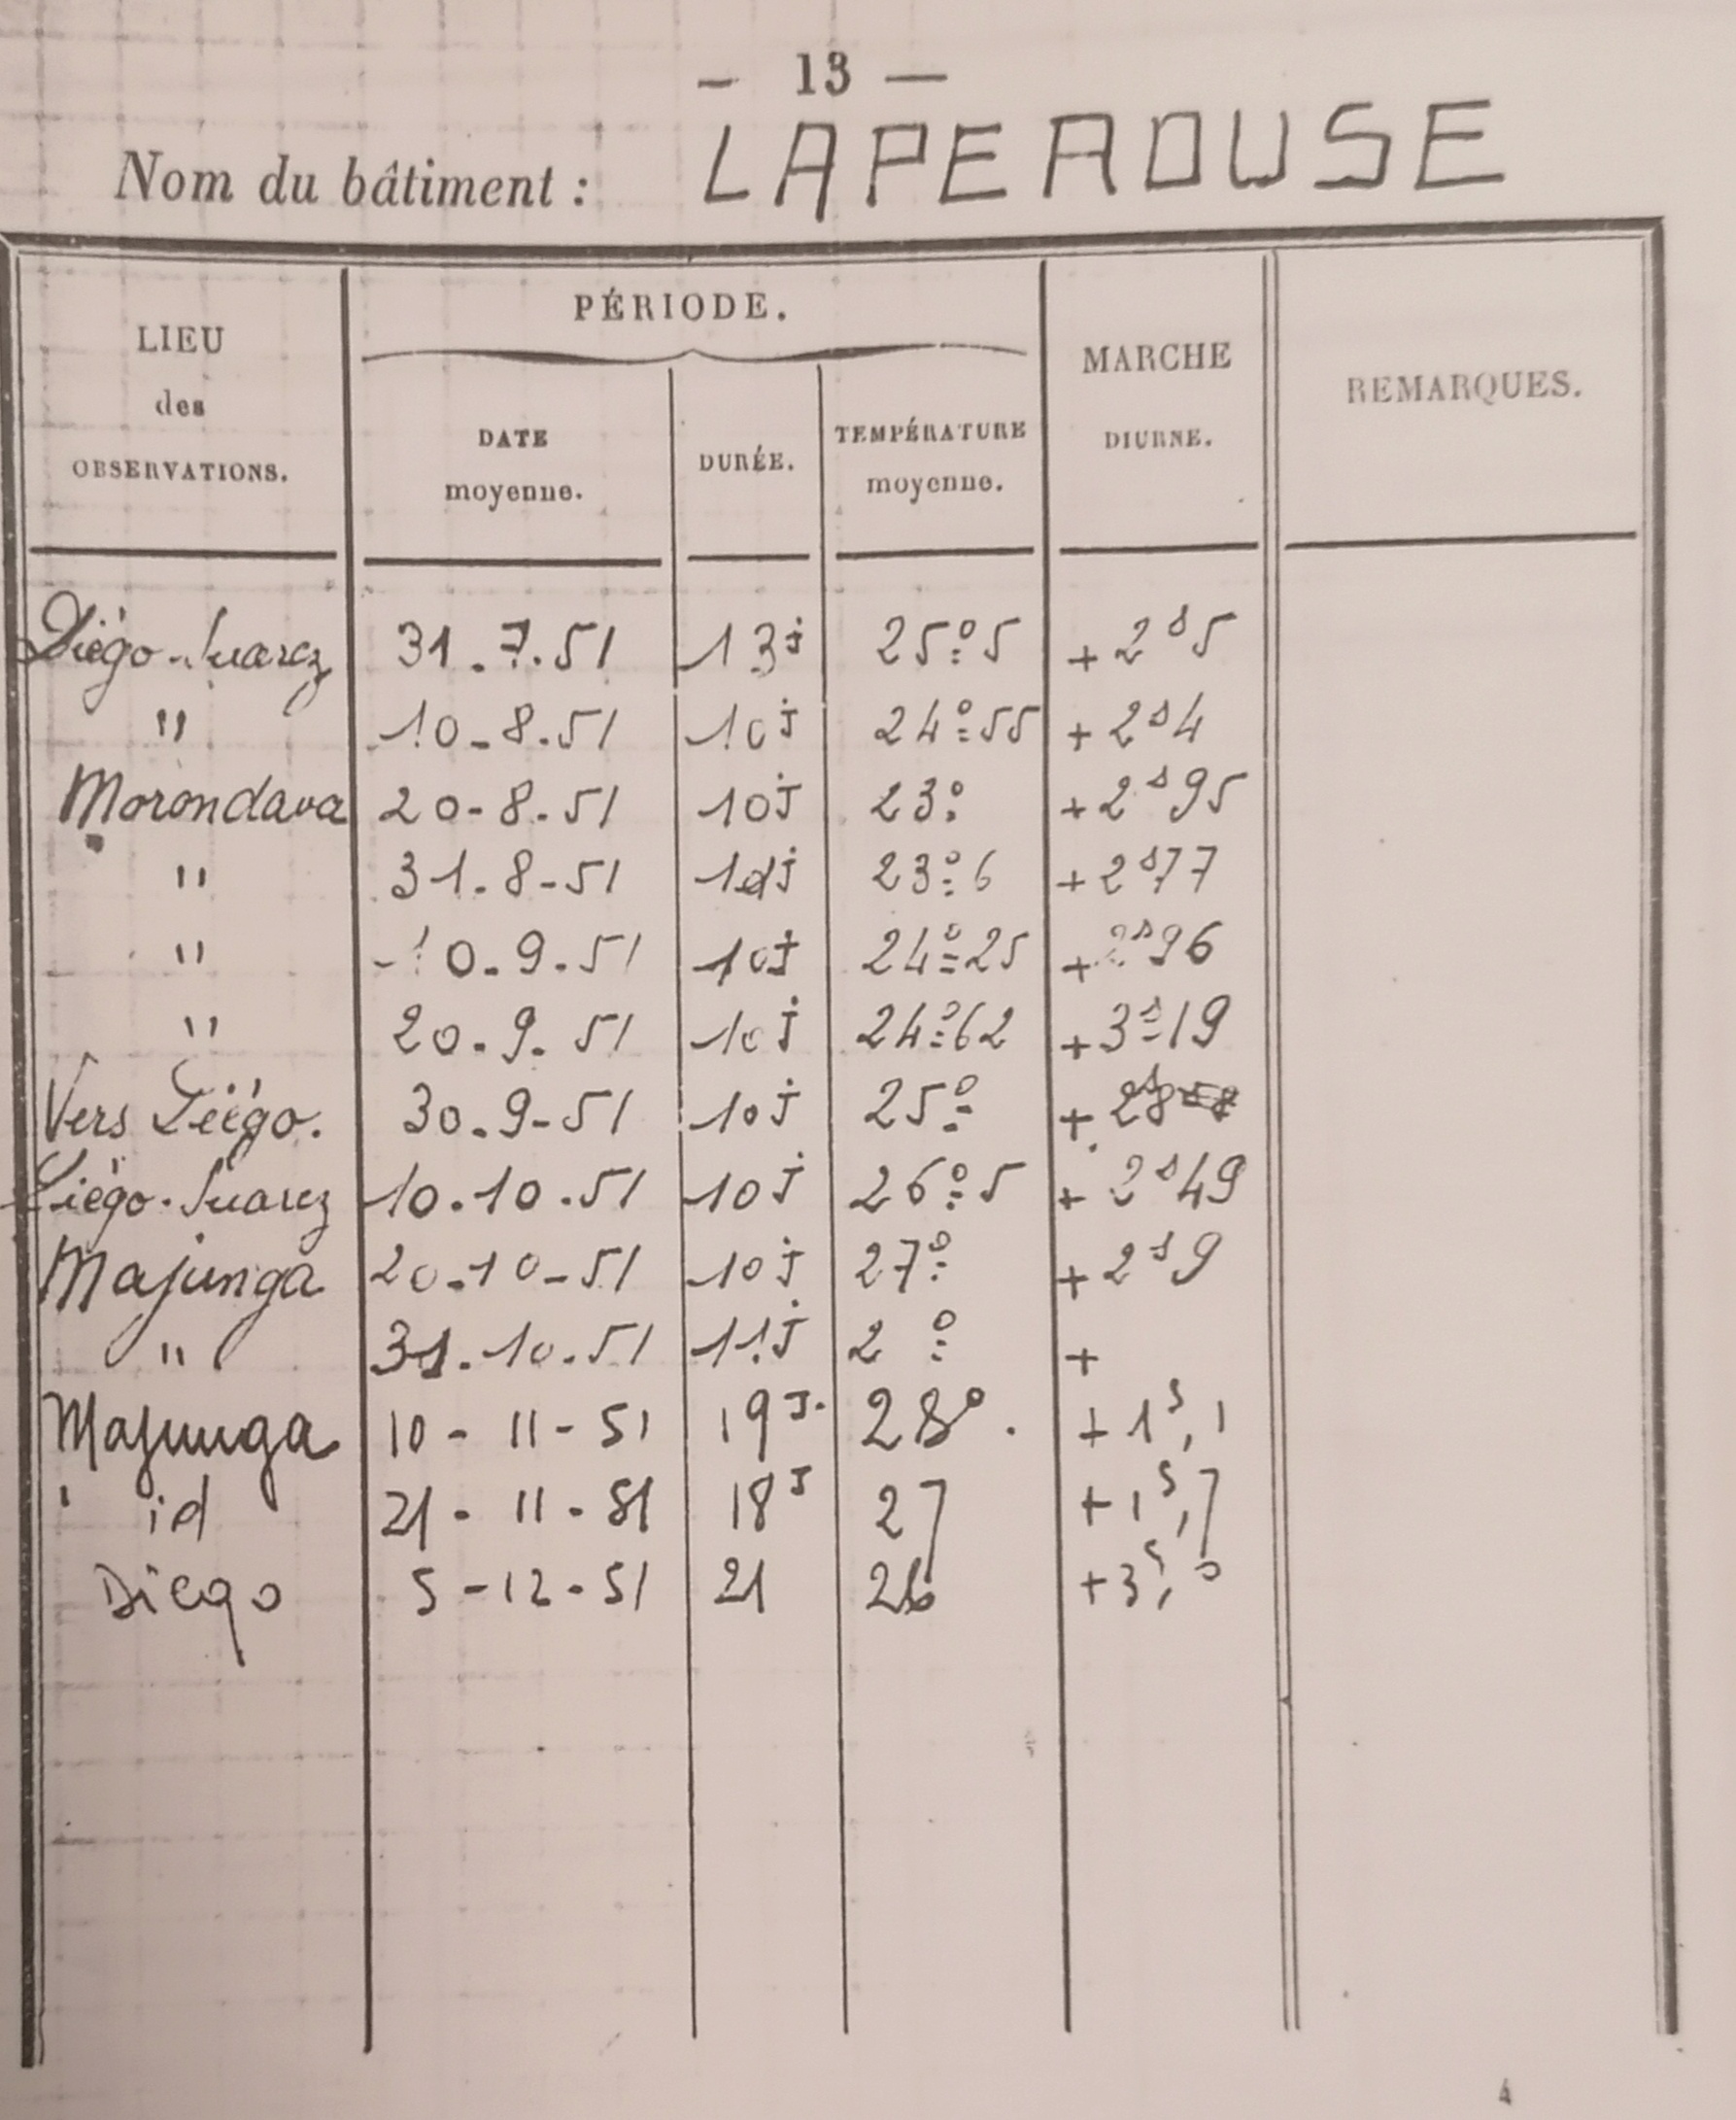 - 13 —
Nom du bâtiment : LAPEROUSE
LIEU des OBSERVATIONS.
PÉRIODE.
DATE moyenne.
DURÉE.
TEMPÉRATURE moyenne.
MARCHE DIURNE.
REMARQUES.
Diégo-Suarez 31.7.51 13j 25°5 +2s5
" 10-8.51 10j 24°55 +2s4
Morondava 20-8.51 10j 23° +2s95
" 31.8-51 23°6 +2s77
" 10.9.51 10j 24°25 +2s96
" 20.9.51 10j 24°62 +3s19
Vers Diégo. 30.9-51 10j 25° +2s8
Diégo-Suarez 10.10.51 10j 26°5 +2s49
Majunga 20.10-51 10j 27° +2s9
" 31.10.51 11j 2 ° +
Majunga 10-11-51 19J. 28°. +1s,1
id 21-11-51 18J 27 +1s,7
Diego 5-12-51 21 26 +3s,0
4